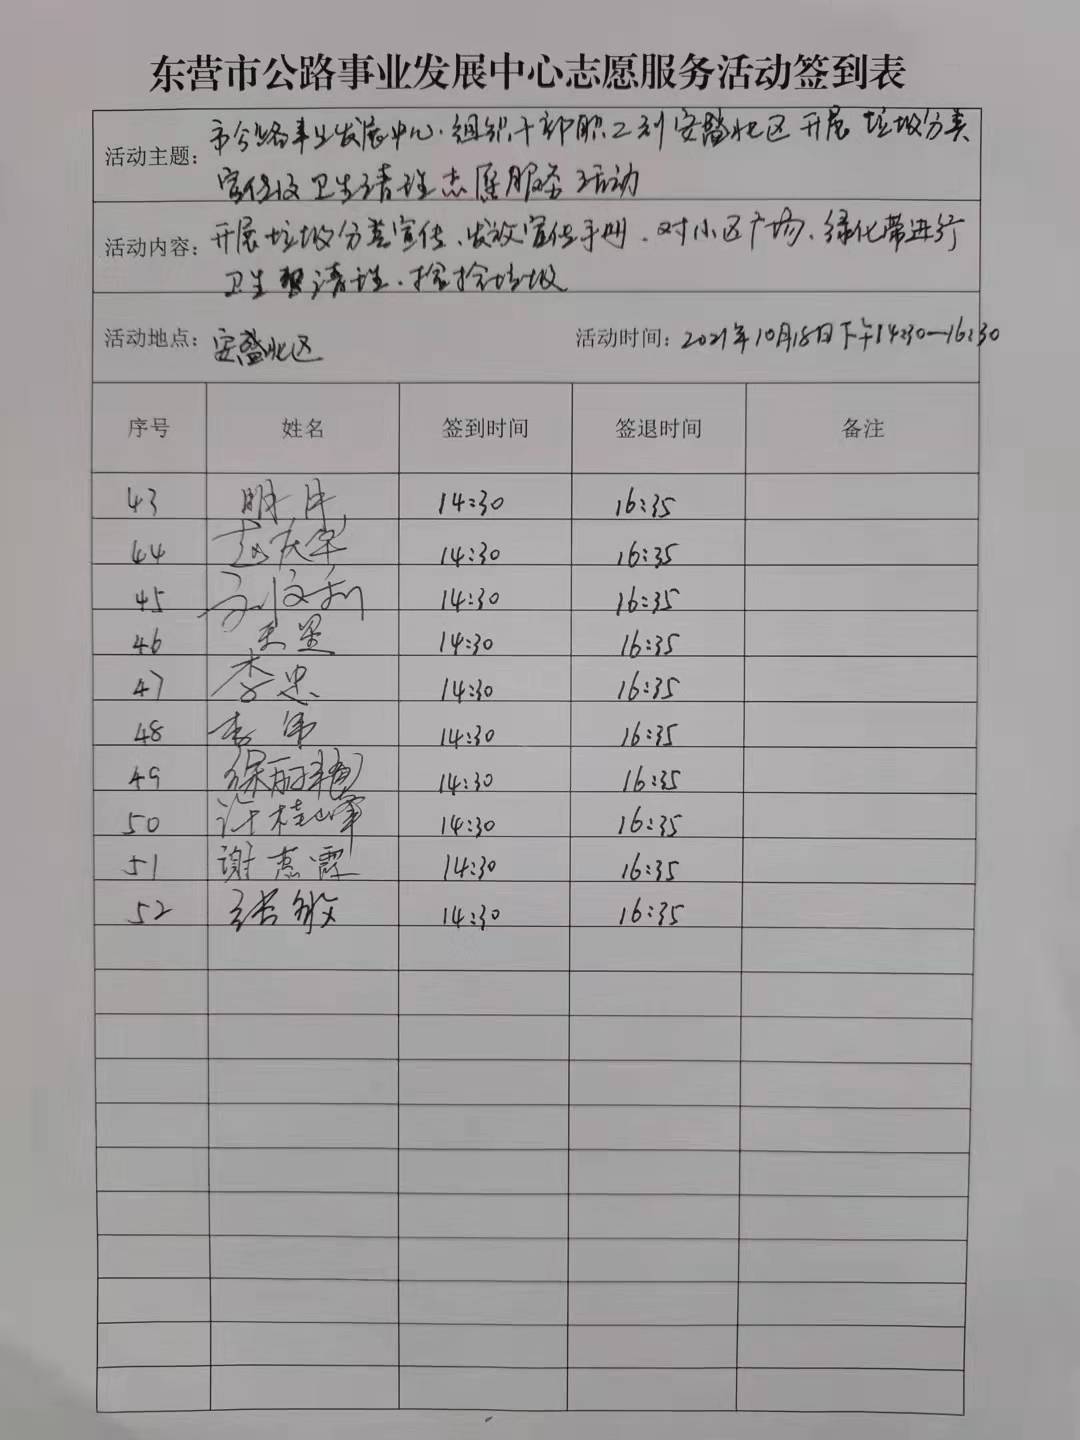 东营市公路事业发展中心志愿服务活动签到表
活动主题: 市公路事业发展中心组织干部职工到安盛北区开展垃圾分类
宣传及卫生清理志愿服务活动
活动内容: 开展垃圾分类宣传、发放宣传手册、对小区广场、绿化带进行
卫生清理、捡拾垃圾
活动地点: 安盛北区 活动时间: 2021年10月18日下午14:30—16:30
序号 姓名 签到时间 签退时间 备注
43 14:30 16:35
44 赵庆军 14:30 16:35
45 14:30 16:35
46 王星 14:30 16:35
47 李忠 14:30 16:35
48 李伟 14:30 16:35
49 徐丽艳 14:30 16:35
50 许桂峰 14:30 16:35
51 谢惠霞 14:30 16:35
52 张敏 14:30 16:35